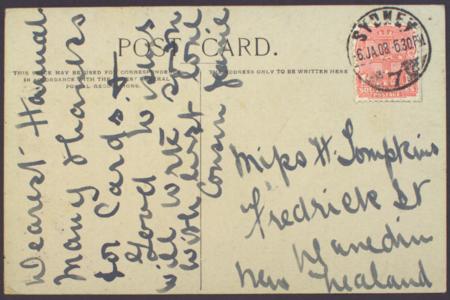 POST CARD.
THIS SPACE MAY BE USED FOR CORRESPONDENCE
IN ACCORDANCE WITH THE
POSTAL REGULATIONS.
THE ADDRESS ONLY TO BE WRITTEN HERE
SYDNEY
6 JA 08 6 30 PM
Dearest Hannah
Many thanks
for Cards &
Good Wishes
will write soon
with best love
Cousin
Miss H. Tompkins
Fredrick St
Dunedin
New Zealand